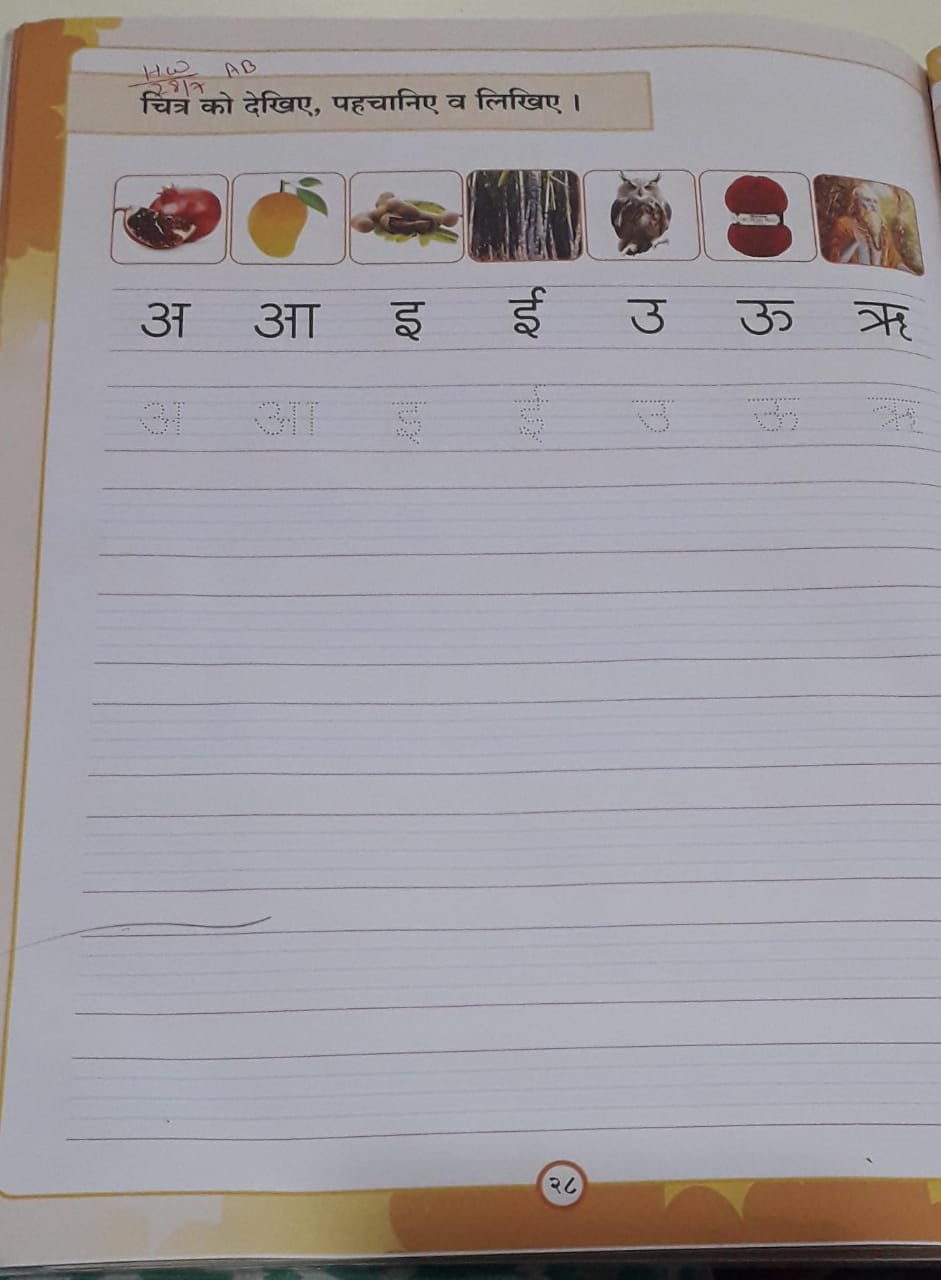 HW AB
चित्र को देखिए, पहचानिए व लिखिए ।
अ आ इ ई उ ऊ ऋ
अ आ इ ई उ ऊ ऋ
२८